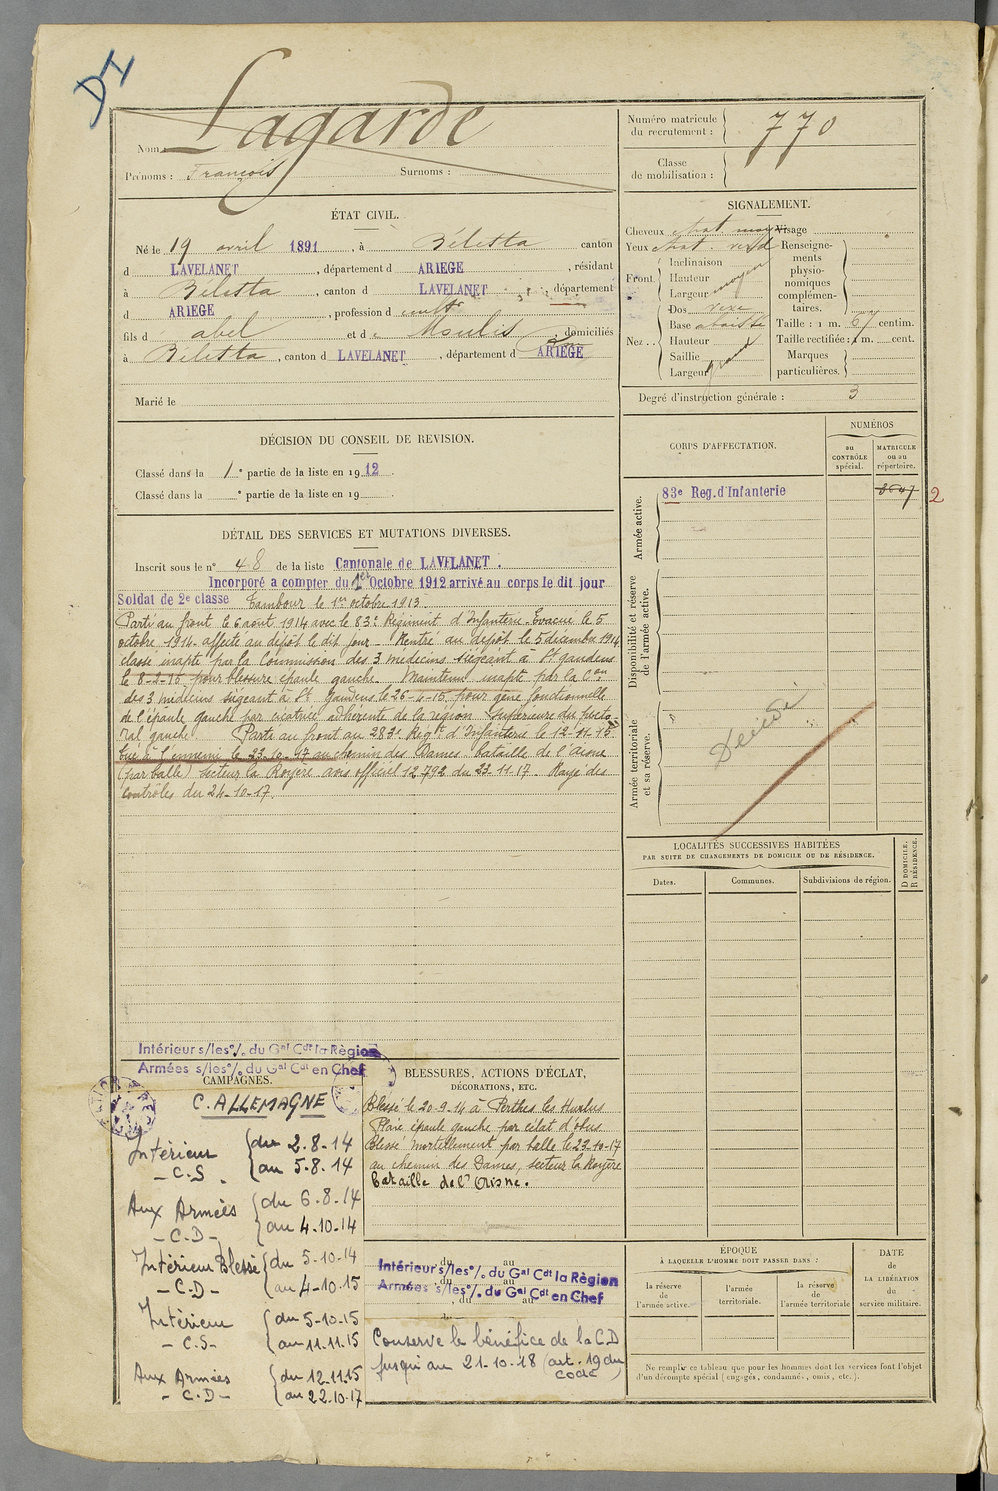 DI
Nom : Lagarde
Prénoms : François Surnoms :
Numéro matricule du recrutement : 770
Classe de mobilisation :
ÉTAT CIVIL.
Né le 19 avril 1891, à Bélesta canton
d LAVELANET, département d ARIEGE, résidant
à Bélesta, canton d LAVELANET, département
d ARIEGE, profession d
fils d abel et d e Moulis, domiciliés
à Bélesta, canton d LAVELANET, département d ARIEGE
Marié le
SIGNALEMENT.
Cheveux chat moy Visage
Yeux chat. verd Renseigne-
ments
physio-
nomiques
complémen-
taires.
Front. Inclinaison
Hauteur moyen
Largeur
Nez .. Dos vexe
Base abaissé
Hauteur
Saillie grand
Largeur
Taille : 1 m. 67 centim.
Taille rectifiée : 1 m. cent.
Marques
particulières.
Degré d'instruction générale : 3
DÉCISION DU CONSEIL DE REVISION.
Classé dans la 1e partie de la liste en 1912.
Classé dans la e partie de la liste en 19
CORPS D'AFFECTATION.
NUMÉROS
au
CONTRÔLE
spécial.
MATRICULE
ou au
répertoire.
Armée active.
83e Reg.d'Infanterie 2
Disponibilité et réserve
de l'armée active.
Armée territoriale
et sa réserve.
Décédé
DÉTAIL DES SERVICES ET MUTATIONS DIVERSES.
Inscrit sous le n° 48 de la liste Cantonale de LAVELANET.
Incorporé a compter du 1er Octobre 1912 arrivé au corps le dit jour
Soldat de 2e classe Tambour le 1er octobre 1913
Parti au front le 6 aout 1914 avec le 83e Régiment d'Infanterie. Evacué le 5
octobre 1914 affecté au dépôt le dit jour Rentré au dépôt le 5 décembre 1914
classé inapte par la Commission des 3 médecins siégeant à St gaudens
le 8-2-15 pour blessure épaule gauche. Maintenu inapte par la Con
des 3 médecins siégeant à St Gaudens le 26-4-15 pour gêne fonctionnelle
de l'épaule gauche par cicatrice adhérente de la région supérieure du pecto-
ral gauche Parti au front au 283e Regt d'Infanterie le 12-11-15
tué à l'ennemi le 23-10-17 au chemin des Dames bataille de l'aisne
(par balle) secteur la Royère avis officiel 12.792 du 23-11-17. Rayé des
contrôles du 24-10-17.
LOCALITÉS SUCCESSIVES HABITÉES
PAR SUITE DE CHANGEMENTS DE DOMICILE OU DE RÉSIDENCE.
Dates. Communes. Subdivisions de région.
D DOMICILE.
R RÉSIDENCE.
Intérieur s/les °/. du Gal Cdt la Règion
Armées s/les °/. du Gal Cdt en Chef
CAMPAGNES.
C. ALLEMAGNE
Intérieur du 2.8-14
- C.S. au 5.8.14
Aux Armées du 6.8.14
- C.D - au 4-10-14
Intérieur Blessé du 5-10-14
- C.D - au 4-10-15
Intérieur du 5-10-15
- C.S- au 11.11.15
Aux Armées du 12.11.15
- C.D - au 22.10.17
BLESSURES, ACTIONS D'ÉCLAT,
DÉCORATIONS, ETC.
Blessé le 20-9-14 à Perthes les Hurlus
Plaie épaule gauche par éclat d'obus
Blessé mortellement par balle le 23-10-17
au chemin des Dames, secteur la Royère
bataille de l'Aisne.
du au
Intérieur s/les °/. du Gal Cdt la Règion
Armées s/les °/. du Gal Cdt en Chef
Conserve le bénéfice de la C.D
jusqu'au 21-10-18 (art. 19 du
code
ÉPOQUE
À LAQUELLE L'HOMME DOIT PASSER DANS :
la réserve
de
l'armée active.
l'armée
territoriale.
la réserve
de
l'armée territoriale
DATE
de
LA LIBÉRATION
du
service militaire.
Ne remplir ce tableau que pour les hommes dont les services font l'objet
d'un décompte spécial (engagés, condamnés, omis, etc.).